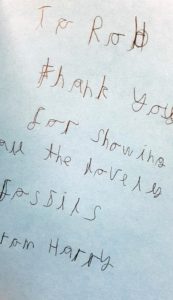 To Rob
thank you
for showing
all the lovely
fossils
rom Harry